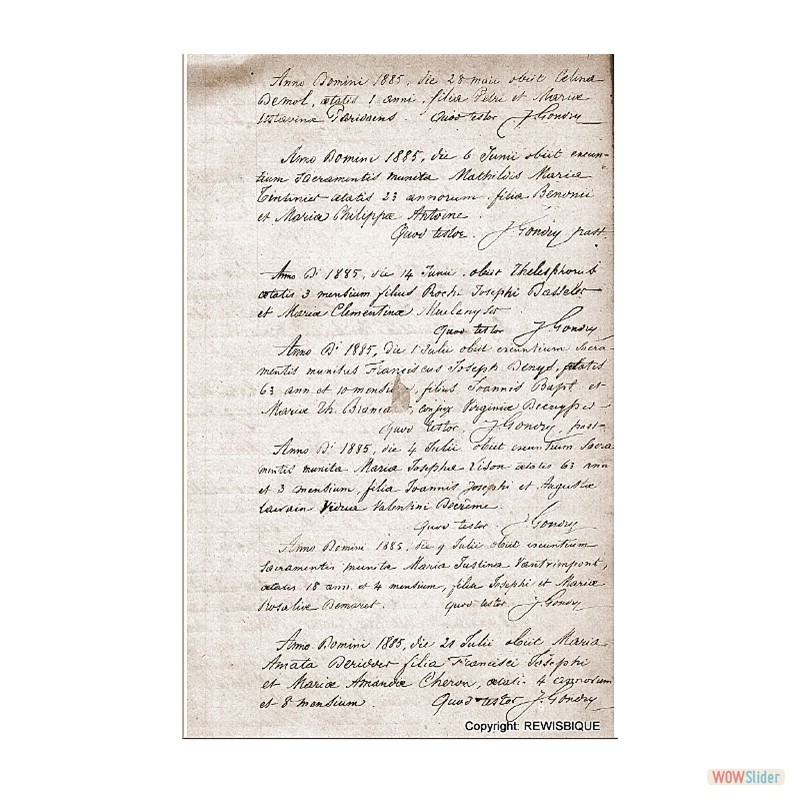 Anno Domini 1885, die 28 maii obiit Celina
Demol, ætatis 1 anni, filia Petri et Mariæ
Paridaens. Quod testor J. Gondry
Anno Domini 1885, die 6 Junii obiit eecun-
tium Sacramentis munita Mathildis Maria
ætatis 23 annorum filia Benonii
et Mariæ Philippæ Antoine.
Quod testor. J. Gondry past.
Anno Dⁱ 1885, die 14 Junii obiit Thelesphorus
ætatis 3 mensium filius Rochi Josephi Basselet
et Mariæ Clementinæ
Quod testor J. Gondry
Anno Dⁱ 1885, die 1 Julii obiit eecuntium Sacra-
mentis munitus Franciscus Joseph Denys, ætatis
63 ann et 10 mensium, filius Joannis Bapt et
Mariæ Th. conjux Virginiæ
Quod testor. J. Gondry, past-
Anno Dⁱ 1885, die 4 Julii obiit eecuntium Sacra
mentis munita Maria Josepha Lison ætatis 63 ann
et 3 mensium, filia Joannis Josephi et Augustæ
Laurain Vidua Valentini Decrème.
Quod testor. J. Gondry
Anno Domini 1885, die 9 Julii obiit eecuntium
Sacramentis munita Maria Justina Vantrimpont,
ætatis 18 ann. et 4 mensium, filia Josephi et Mariæ
Rosaliæ Demaret. Quod testor J. Gondry
Anno Domini 1885, die 20 Julii obiit Maria
Amata filia Francisci Josephi
et Mariæ Amandæ Cheron, ætati. 4 annorum
et 8 mensium. Quod testor J. Gondry
Copyright: REWISBIQUE
WOWSlider